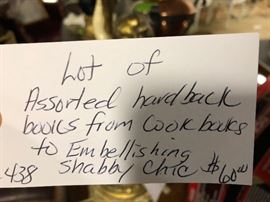 Lot of
Assorted hardback
books from Cook books
to Embellishing
438 Shabby Chic $60.00